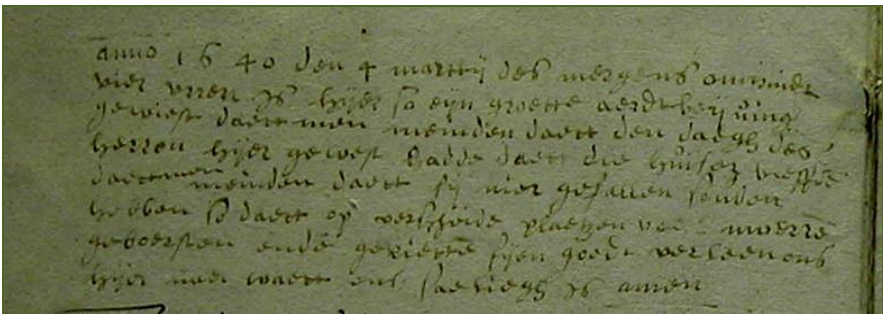 anno 1640 den 4 martij des mergens omtrindt
vier vrren is hijer so eijn groette aerdtbeyving
gewiest daett men meinden daett den daegh des
herren hijer gewest hadde daett die huiser
daett men meinden daett sij nier gefallen souden
hebben so daett op verscheide plaetzen moerrē
geboersten ende gerietten sijen godt verleen ons
hijer naer waett ons saeliegh is amen